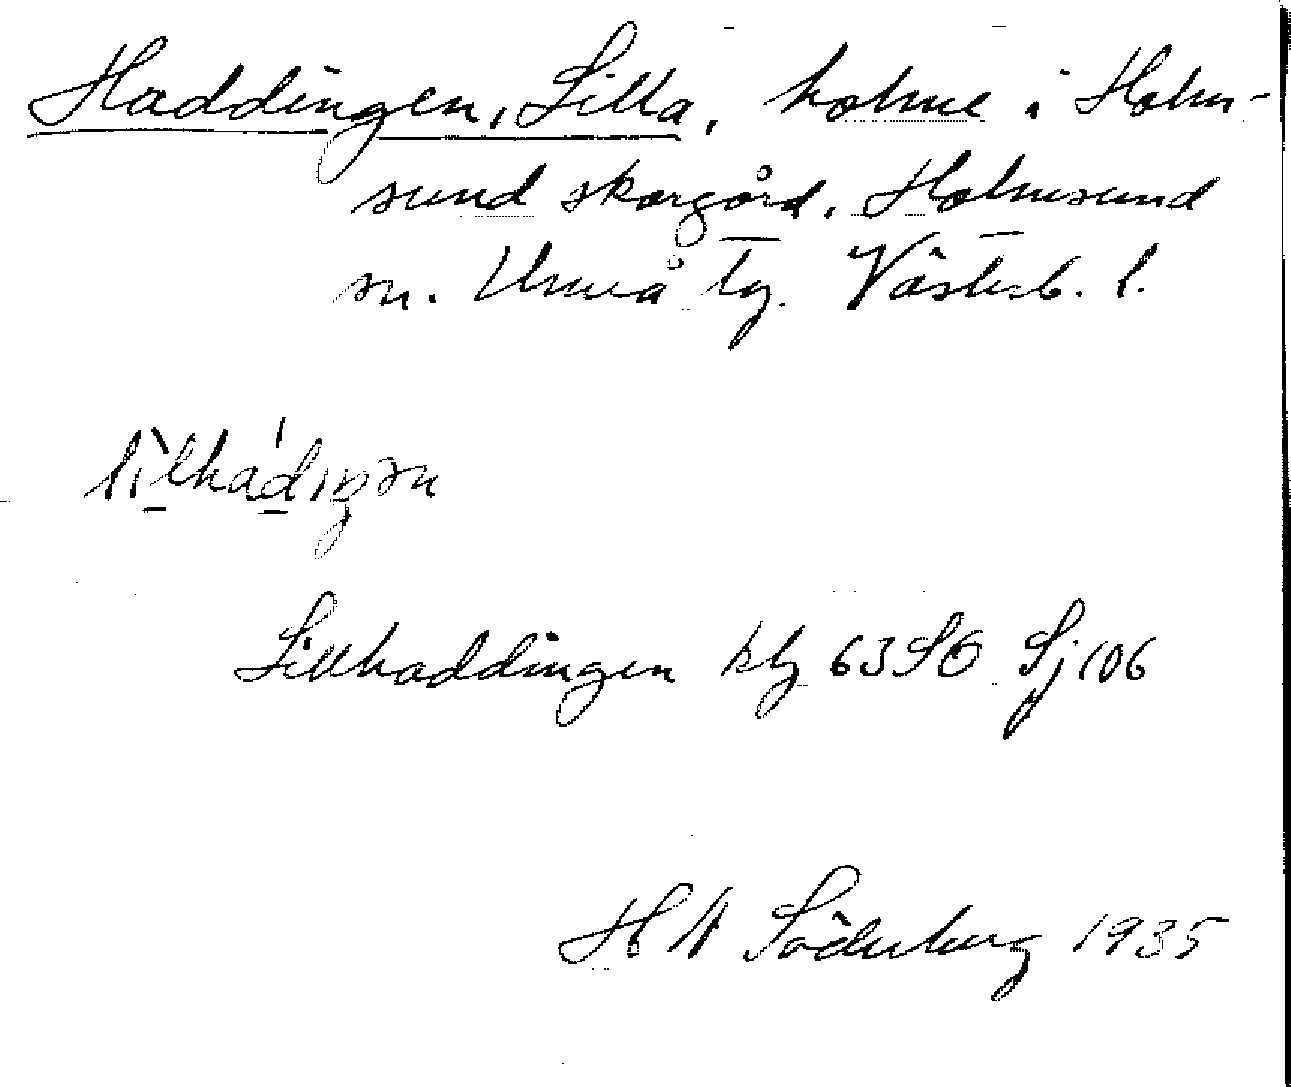 Haddingen, Lilla, holme i Holm-
sund skärgård, Holmsund
sn. Umeå tg. Västerb. l.
Lillhaddingen kbl 63SO Sj 106
H W Söderberg 1935